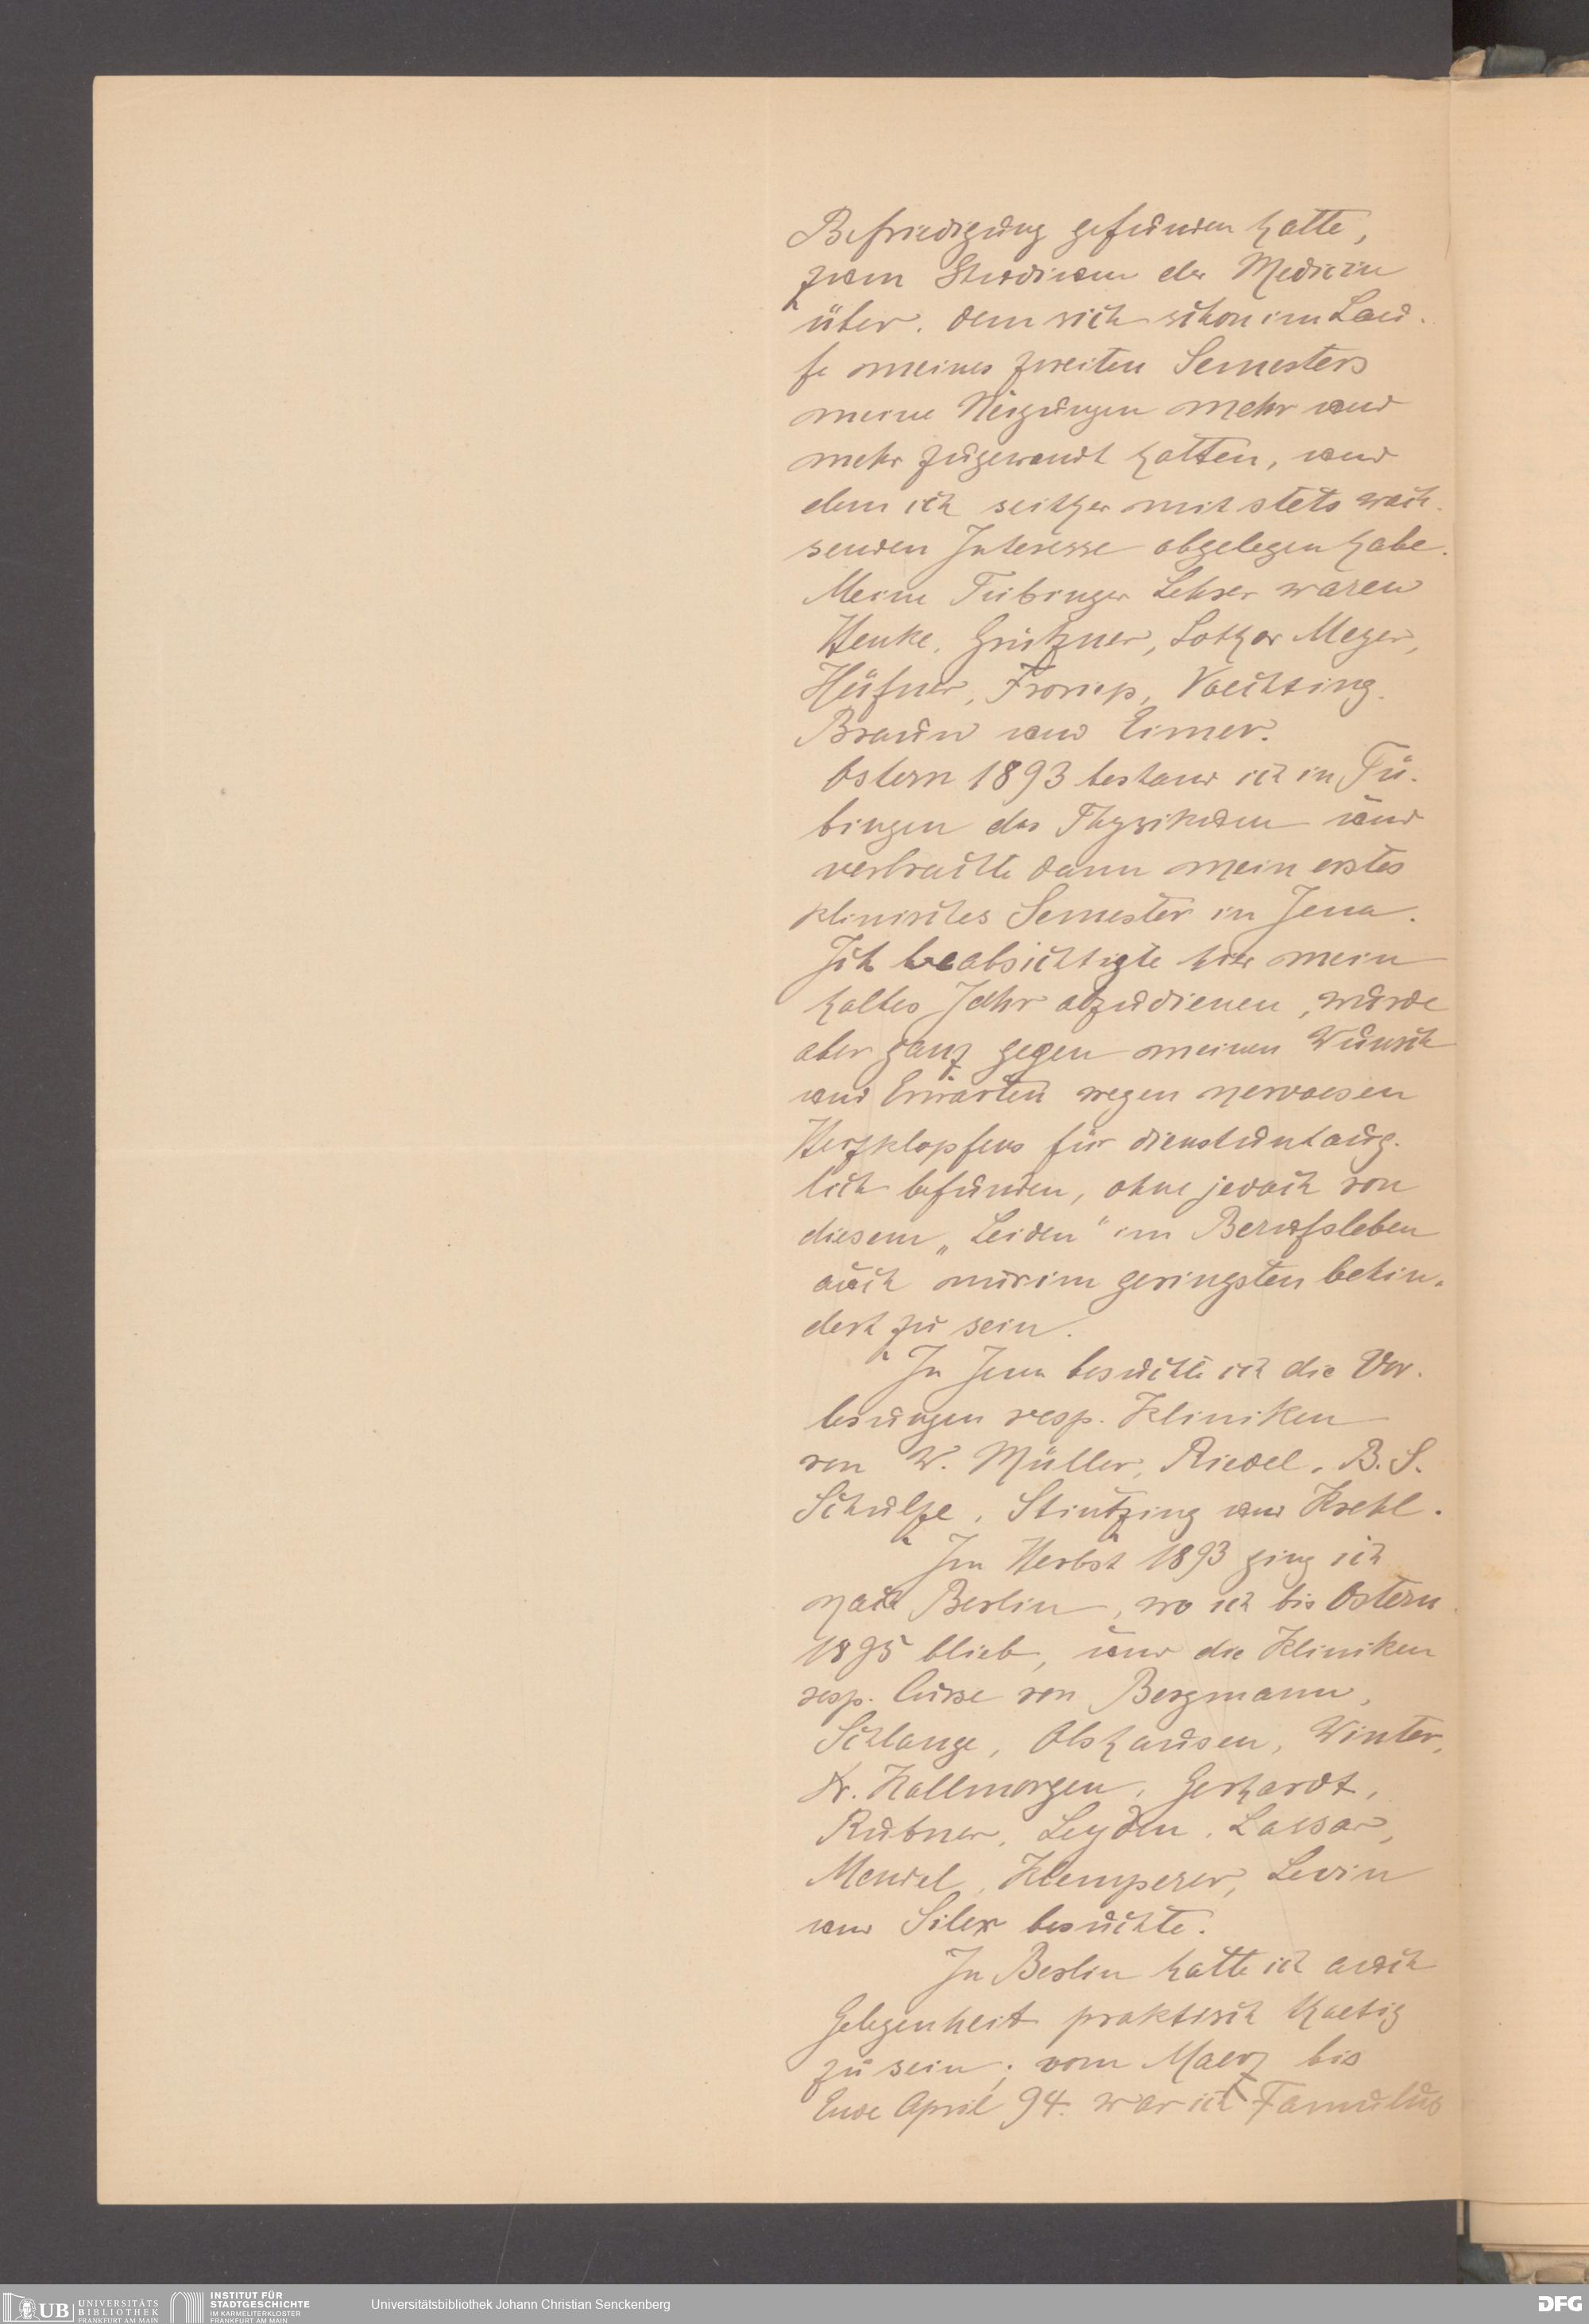 Befriedigung gefunden hatte,
zum Studium der Medicin
über, dem sich schon im Lau-
fe meines zweiten Semesters
meine Neigungen mehr und
mehr zugewandt hatten, und
dem ich seither mit stets wach-
senden Interesse obgelegen habe.
Meine Tübinger Lehrer waren
Henke, Grützner, Lothar Meyer,
Hüfner, Froriep, Voechting,
Braun und Eimer.
Ostern 1893 bestand ich in Tü-
bingen das Physikum und
verbrachte dann mein erstes
klinisches Semester in Jena.
Ich beabsichtigte hier mein
halbes Jahr abzudienen, wurde
aber ganz gegen meinen Wunsch
und Erwarten wegen nervoesen
Herzklopfens für dienstuntaug-
lich befunden, ohne jedoch von
diesem „Leiden“ im Berufsleben
auch nur im geringsten behin-
dert zu sein.
In Jena besuchte ich die Vor-
lesungen resp. Kliniken
von W. Müller, Riedel, B. S.
Schulze, Stintzing und Krehl.
Im Herbst 1893 ging ich
nach Berlin, wo ich bis Ostern
1895 blieb, und die Kliniken
resp. Curse von Bergmann,
Schlange, Olshausen, Winter,
Dr. Kallmorgen, Gerhardt,
Rubner, Leyden, Lassar,
Mendel, Klemperer, Levin
und Silex besuchte.
In Berlin hatte ich auch
Gelegenheit praktisch thaetig
zu sein; vom Maerz bis
Ende April 94. war ich Famulus
UB UNIVERSITÄTS
BIBLIOTHEK
FRANKFURT AM MAIN
INSTITUT FÜR
STADTGESCHICHTE
IM KARMELITERKLOSTER
FRANKFURT AM MAIN
Universitätsbibliothek Johann Christian Senckenberg
DFG